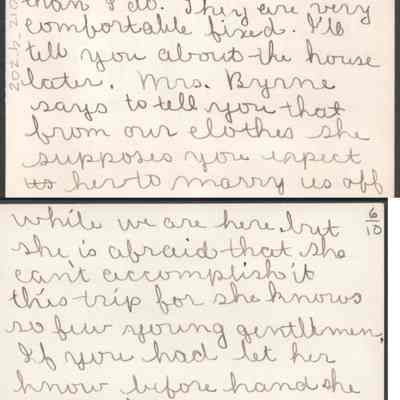 than I do. They are very
comfortable fixed. I'll
tell you about the house
later. Mrs. Byrne
says to tell you that
from our clothes she
supposes you expect
her to marry us off
while we are here, but
6/10
she is afraid that she
can't accomplish it
this trip for she knows
so few young gentlemen.
If you had let her
know before hand she